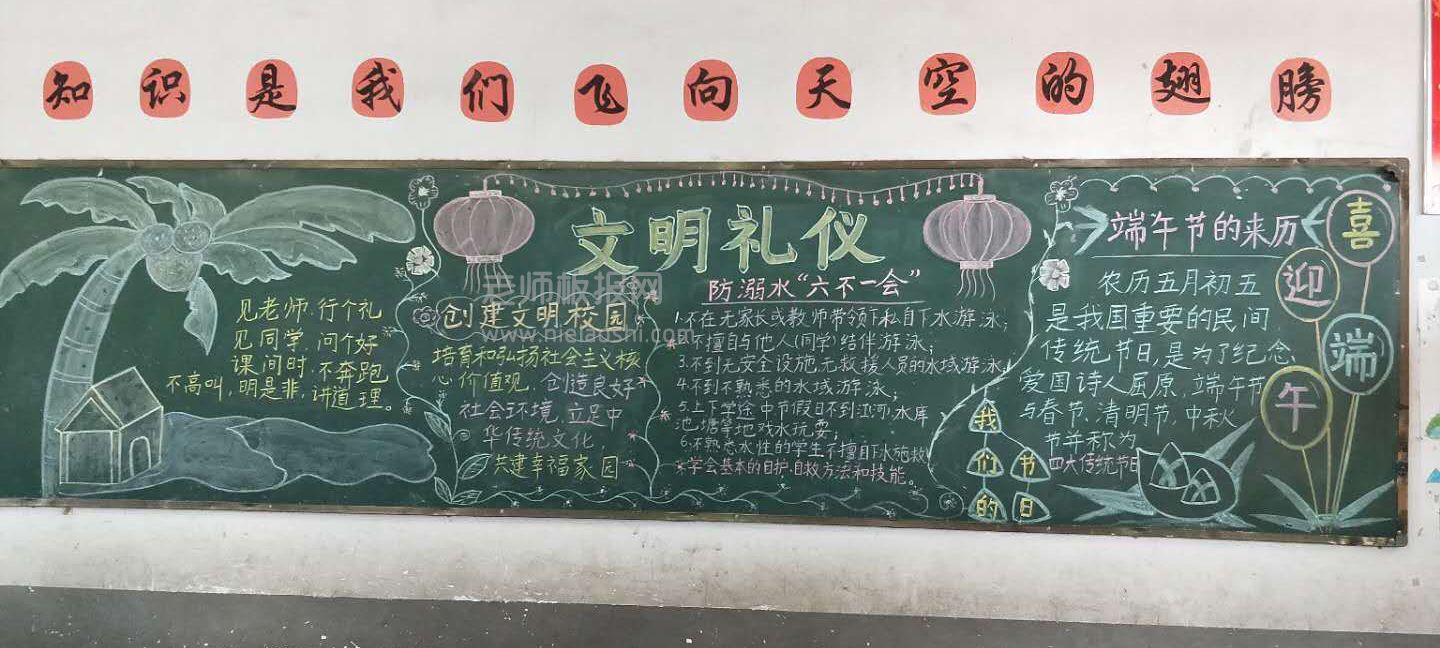 知识是我们飞向天空的翅膀
文明礼仪
见老师,行个礼
见同学,问个好
课间时,不奔跑
不高叫,明是非,讲道理。
创建文明校园
培育和弘扬社会主义核
心价值观,创造良好
社会环境,立足中
华传统文化,
共建幸福家园
防溺水“六不一会”
1.不在无家长或教师带领下私自下水游泳;
2.不擅自与他人(同学)结伴游泳;
3.不到无安全设施,无救援人员的水域游泳;
4.不到不熟悉的水域游泳;
5.上下学途中节假日不到江河,水库
池塘等地戏水玩耍;
6.不熟悉水性的学生不擅自下水施救
学会基本的自护,自救方法和技能。
我们的
节日
端午节的来历
农历五月初五
是我国重要的民间
传统节日,是为了纪念
爱国诗人屈原,端午节
与春节,清明节,中秋
节并称为
四大传统节日
喜迎端午
老师板报网
www.nislaoshi.com